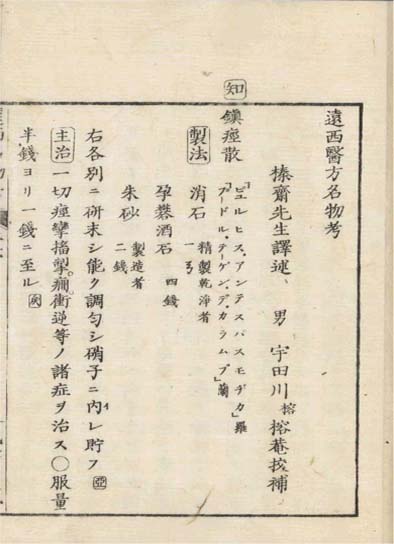 遠西醫方名物考
榛齋先生譯述、男 宇田川榕 榕菴挍補
知
鎮痙散
「ピュルヒス、アンテスパスモヂカ」羅
「プードル、テーゲン、デ、カラムプ」蘭
製法 消石 精製乾淨者 一ゝ
孕礬酒石 四錢
朱砂 製造者 二錢
右各別ニ研末シ能ク調匀シ硝子ニ内レ貯フ 亞
主治 一切痙攣搐掣、癇、衝逆等ノ諸症ヲ治ス〇服量
半錢ヨリ一錢ニ至ル